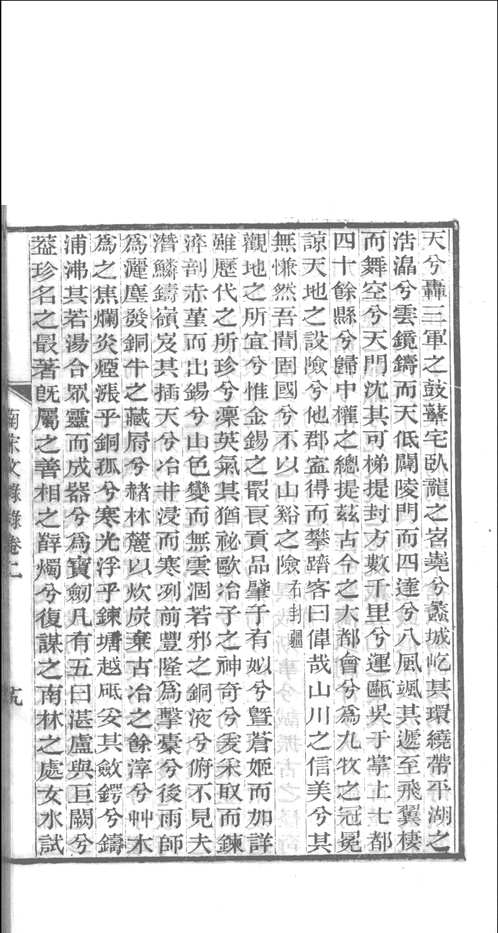 天兮轟三軍之鼓鼙宅臥龍之岧嶤兮蠡城屹其環繞帶平湖之
浩溫兮雲鏡鑄而天低闢陵門而四達兮八風颯其遞至飛翼棲
而舞空兮天門沈其可梯提封方數千里兮運甌吳于掌上七都
四十餘縣兮歸中權之總提茲古今之大都會兮爲九牧之冠冕
諒天地之設險兮他郡寍得而攀躋客曰偉哉山川之信美兮其
無慊然吾聞固國兮不以山谿之險右封疆
觀地之所宜兮惟金錫之最良貢品肇于有姒兮曁蒼姬而加詳
雖歷代之所珍兮稟英氣其猶祕歐冶子之神奇兮爰采取而鍊
淬剖赤堇而出錫兮山色變而無雲涸若邪之銅液兮俯不見夫
潛鱗鑄嶺岌其插天兮冶井浸而寒冽前豐隆爲擊橐兮後雨師
爲灑塵發銅牛之藏屑兮赭林麓以炊炭棄古冶之餘滓兮艸木
爲之焦爛炎煙漲乎銅孤兮寒光浮乎鍊塘越砥妥其斂鍔兮鑄
浦沸其若湯合眾靈而成器兮爲寶劒凡有五曰湛盧與巨闕兮
葢珍名之最著旣屬之善相之薛燭兮復謀之南林之處女水試
南宋文錄錄卷二